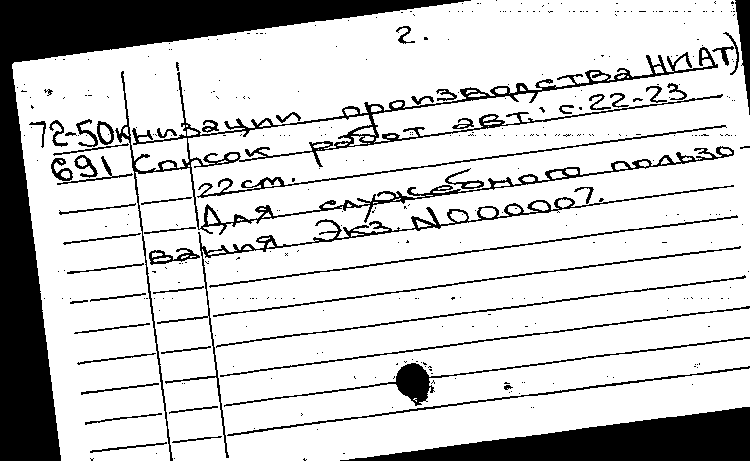 2.
72-50книзации производства НИАТ)
691 Список работ авт.: с.22-23
22см.
Для служебного пользо-
вания. Экз. N000007.